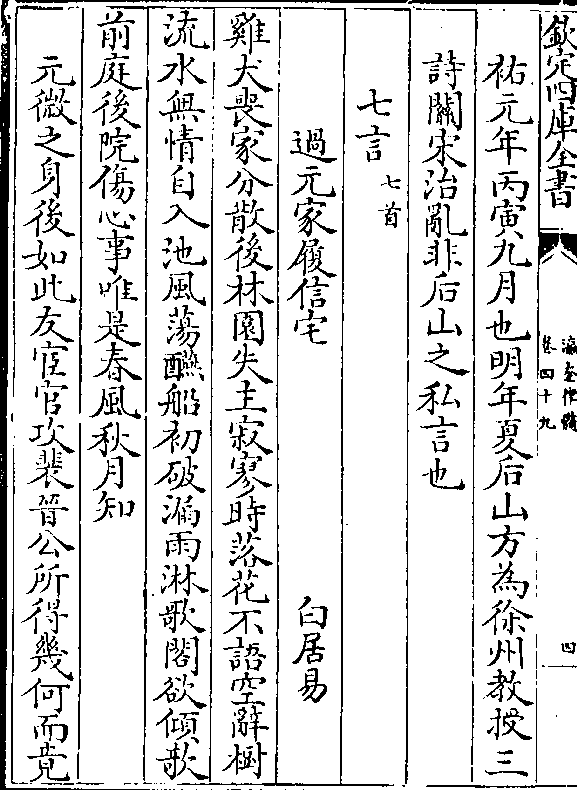 欽定四庫全書
瀛奎律髓
卷四十九
四
祐元年丙寅九月也明年夏后山方為徐州教授三
詩關宋治亂非后山之私言也
七言七首
過元家履信宅 白居易
雞犬喪家分散後林園失主寂寥時落花不語空辭樹
流水無情自入池風蕩醼船初破漏雨淋歌閣欲傾欹
前庭後院傷心事唯是春風秋月知
元微之身後如此友宦官攻裴晉公所得幾何而竟